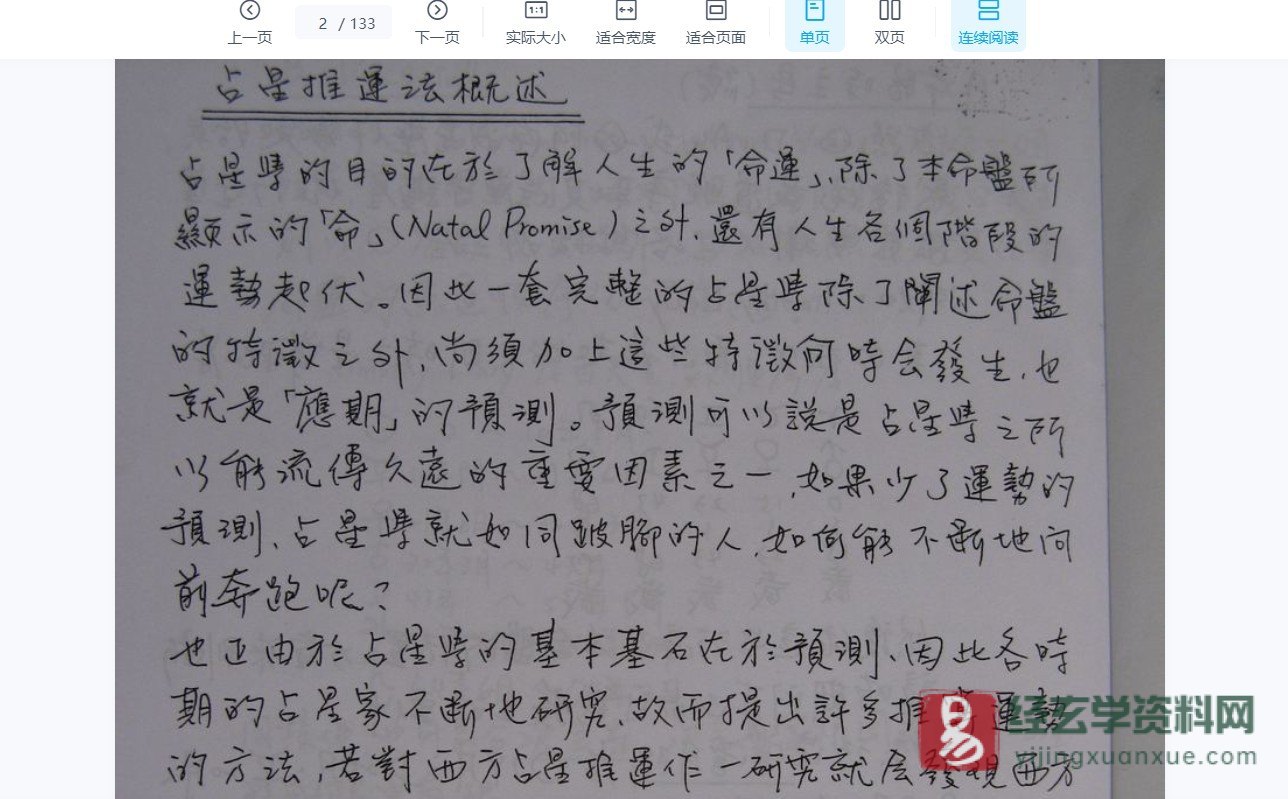 上一页
2 / 133
下一页
实际大小
适合宽度
适合页面
单页
双页
连续阅读
占星推運法概述
占星學的目的在於了解人生的「命運」,除了本命盤所
顯示的「命」(Natal Promise)之外,還有人生各個階段的
運勢起伏。因此一套完整的占星學除了闡述命盤
的特徵之外,尚須加上這些特徵何時会發生,也
就是「應期」的預測。預測可以說是占星學之所
以能流傳久遠的重要因素之一,如果少了運勢的
預測,占星學就如同跛腳的人,如何能不斷地向
前奔跑呢?
也正由於占星學的基本基石在於預測,因此各時
期的占星家不斷地研究,故而提出許多推 運勢
的方法,若對西方占星推運作一研究就会發現西方
易
易经玄学资料网
yijingxuanxue.com